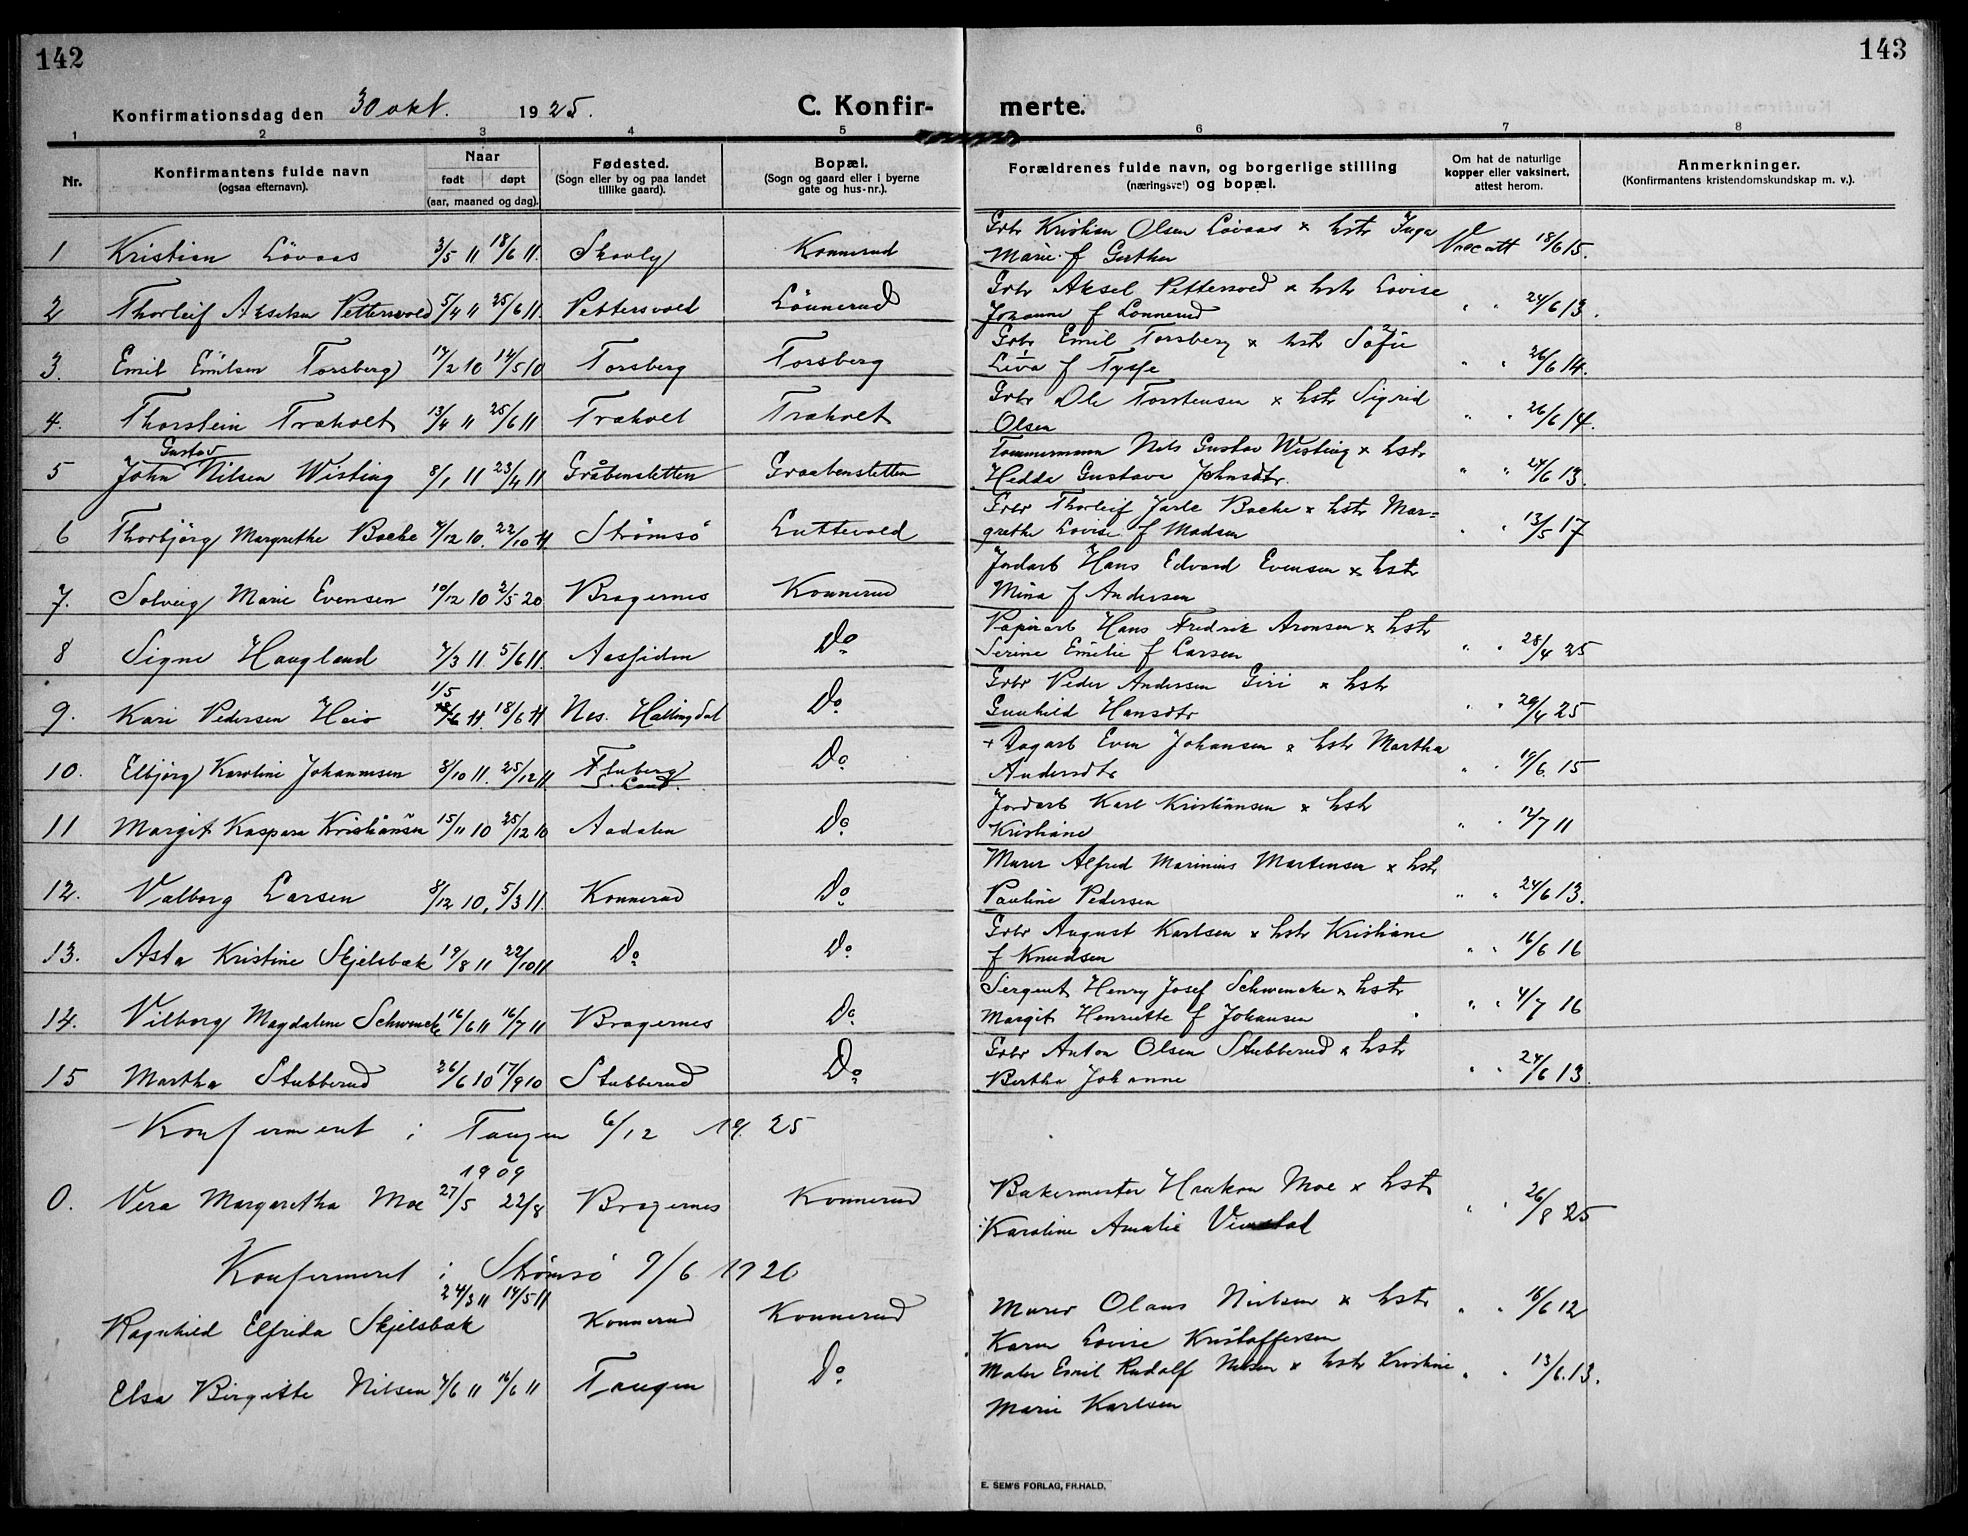 142
143
Konfirmationsdag den 30 okt. 1925.
C. Konfir-
merte.
1 2 3 4 5 6 7 8
Nr.
Konfirmantens fulde navn
(ogsaa efternavn).
Naar
født døpt
(aar, maaned og dag).
Fødested.
(Sogn eller by og paa landet
tillike gaard).
Bopæl.
(Sogn og gaard eller i byerne
gate og hus-nr.).
Forældrenes fulde navn, og borgerlige stilling
(næringsvei) og bopæl.
Om hat de naturlige
kopper eller vaksinert,
attest herom.
Anmerkninger.
(Konfirmantens kristendomskundskap m. v.).
1 Kristian Lövaas 3/5 11 18/6 11. Skovly Konnerud Grbr Kristian Olsen Lövaas x hstr Inga
Marie f Guthu Vaccatt 18/6 15.
2 Thorleif Akselsen Pettersvold 5/4 11 25/6 11. Pettersvold Lönnerud Grbr Aksel Pettersvold x hstr Lovise
Johanne f Lonnerud " " 24/6 13.
3. Emil Emilsen Torsberg 17/2 10 14/5 10 Torsberg Torsberg Grbr Emil Torsberg x hstr Sofie
Liva f Tysse " " 26/6 14.
4. Thorstein Træholt 13/4 11 25/6 11 Træholt Træholt Grbr Ole Torstensen x hstr Sigrid
Olsen " " 26/6 14.
Gustav
5 John Nilsen Wisting 8/1 11 23/4 11 Gråbensletten Graabensletten Tømmermann Nils Gustav Wisting x hstr
Hedda Gustava Johnsdtr. " " 24/6 13.
6 Thorbjörg Margrethe Bache 4/12 10. 22/10 11 Strømsö Luttevold Grbr Thorleif Jarle Bache x hstr Mar=
grethe Lovise f Madsen " " 13/5 17
7. Solveig Marie Evensen 10/12 10 2/5 20 Bragernes Konnerud Jordarb Hans Edvard Evensen x hstr
Mina f Andersen
8 Signe Haugland 4/3 11. 5/6 11. Aassiden Do Papirarb Hans Fredrik Aronsen x hstr
Serine Emilie f Larsen " " 28/4 25
1/5
9. Kari Pedersen Heio 18/6 11 18/6 11 Nes. Hallingdal Do Grbr Peder Andersen Giri x hstr
Gunhild Hansdtr " " 29/4 25
10. Elbjörg Karoline Johannesen 8/10 11. 25/12 11 Fluberg
S. Land. Do + Dagarb Even Johansen x hstr Martha
Andersdtr " " 19/6 15
11 Margit Kaspara Kristiansen 15/11 10 25/12 10 Aadalen Do Jordarb Karl Kristiansen x hstr
Kristiane " " 12/7 11
12. Valborg Larsen 8/12 10, 5/3 11. Konnerud Do Murer Alfred Marinius Martensen x hstr
Pauline Pedersen " " 24/6 13.
13. Asta Kristine Skjelsbæk 19/8 11 22/10 11 Do Do Grbr August Karlsen x hstr Kristiane
f Knudsen " " 16/6 16
14. Vilborg Magdalene Schwencke 16/6 11 16/7 11 Bragernes Do Sergent Henry Josef Schwencke x hstr
Margit Henriette f Johansen " " 4/7 16
15 Martha Stubberud 26/6 10 17/9 10 Stubberud Do Grbr Anton Olsen Stubberud x hstr
Bertha Johanne " " 24/6 13.
Konfirmeret i Tangen 6/12 19 25
1909
0. Vera Margaretha Moe 27/5 22/8 Bragernes Konnerud Bakermester Haakon Moe x hstr
Karoline Amalie " " 26/8 25
Konfirmeret i Strømsö 9/6 1926
24/3 11 14/5 11
Ragnhild Elfrida Skjelsbæk Konnerud Konnerud Murer Olaus Nielsen x hstr " " 18/6 12
Karen Lovise Kristoffersen
Elsa Birgitte Nilsen 4/6 11 16/6 11 Tangen Do Maler Emil Rudolf Nilsen x hstr Kristine " " 13/6.13.
Marie Karlsen
E. SEM'S FORLAG, FR.HALD.